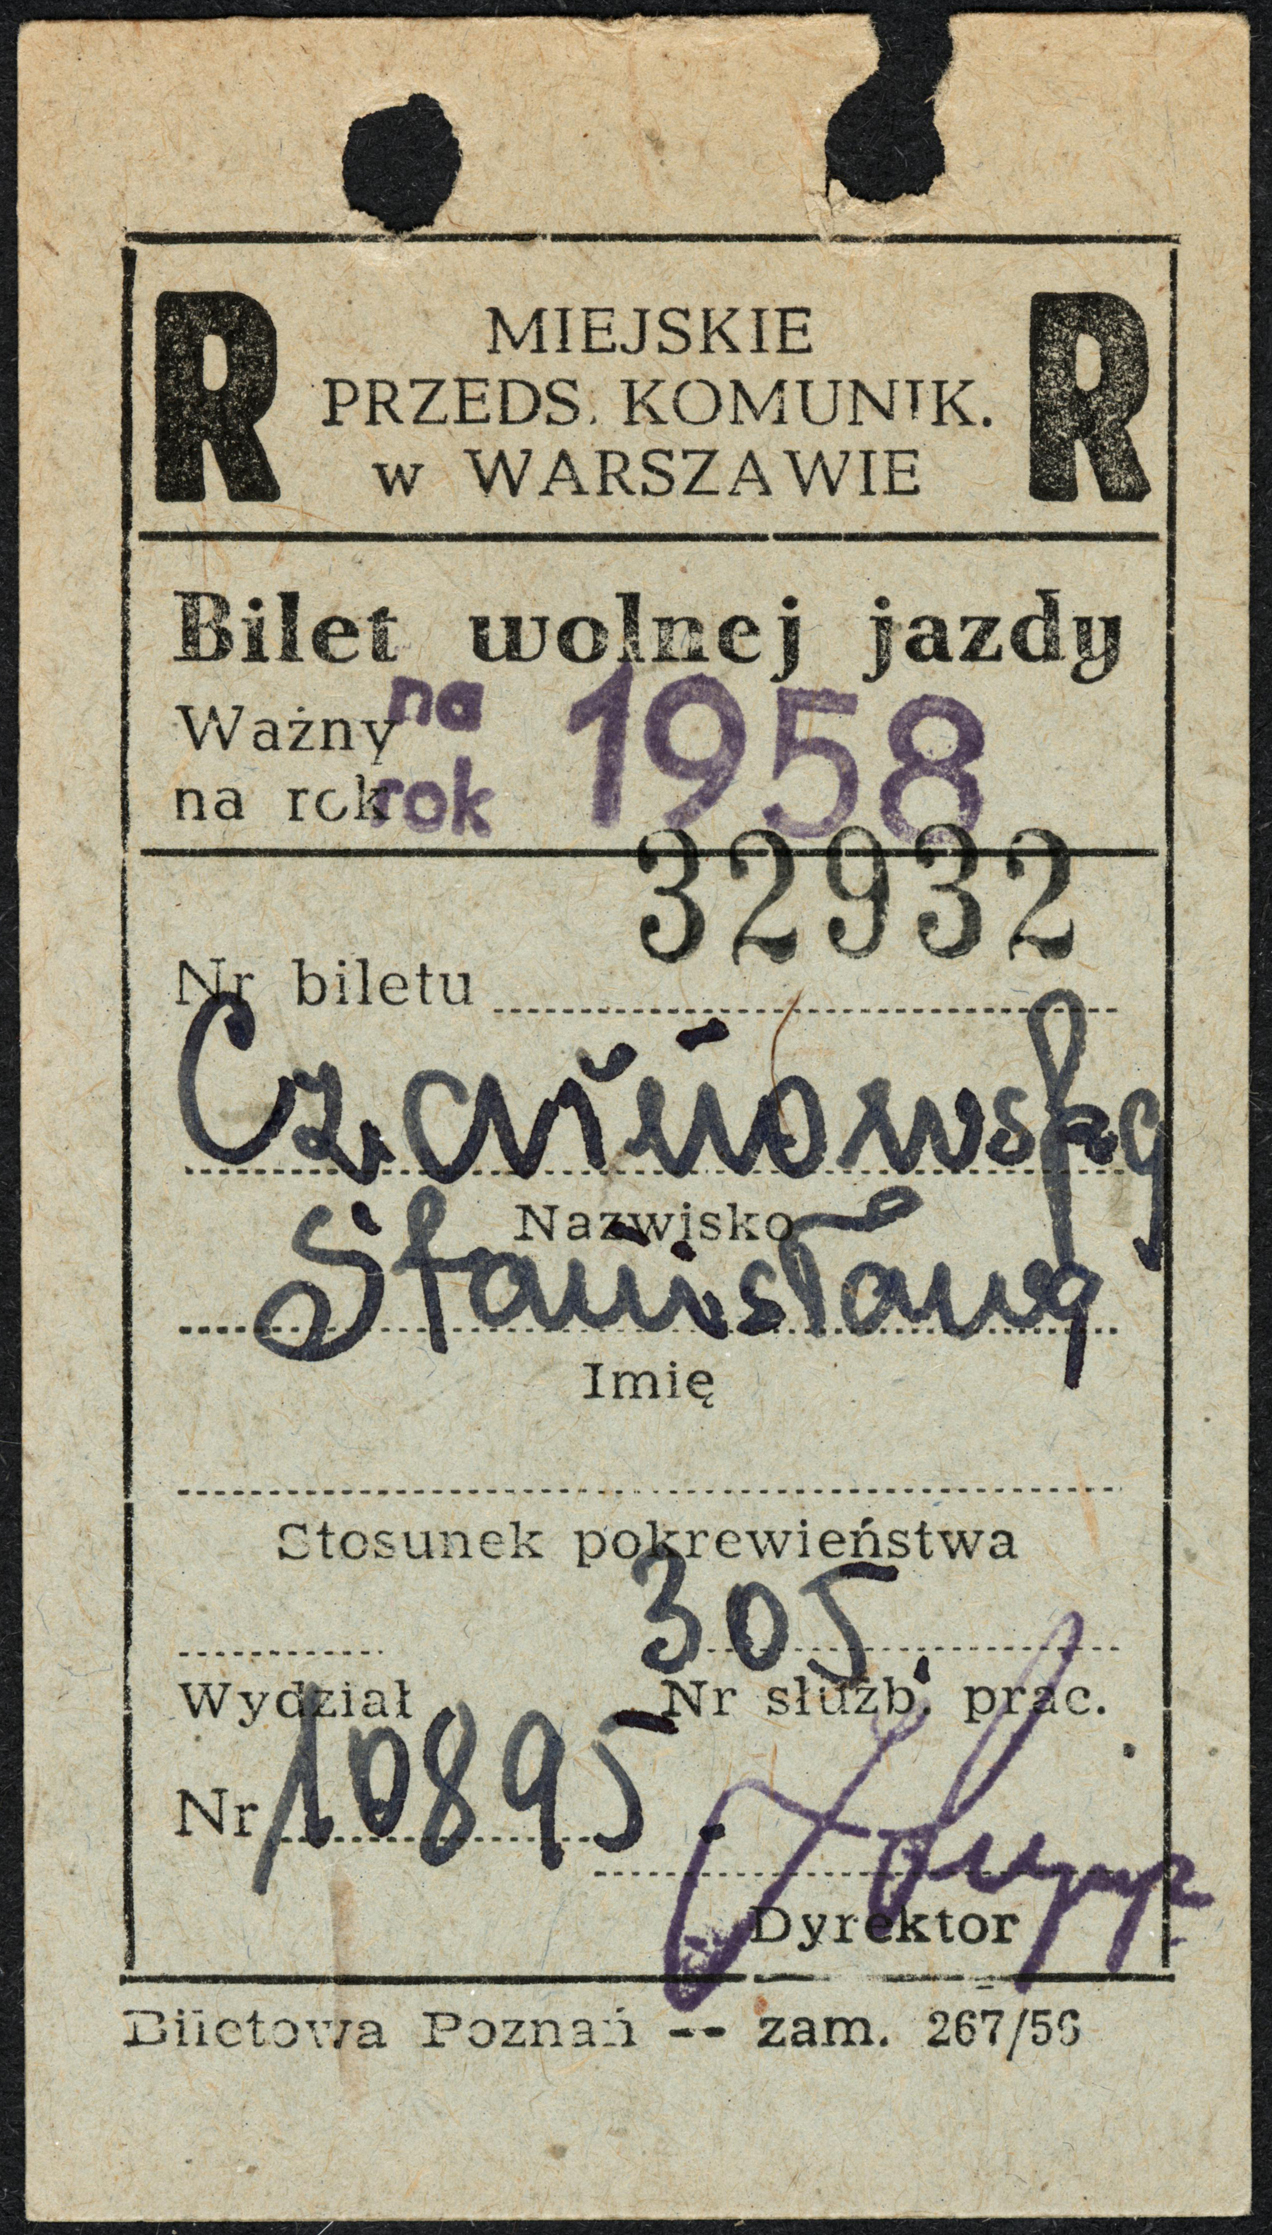 R MIEJSKIE R
PRZEDS. KOMUNIK.
w WARSZAWIE
Bilet wolnej jazdy
Ważny na 1958
na rok rok
32932
Nr biletu
Nazwisko
Stanisława
Imię
Stosunek pokrewieństwa
305
Wydział Nr służb. prac.
Nr 10895
Dyrektor
Biletowa Poznań -- zam. 267/56